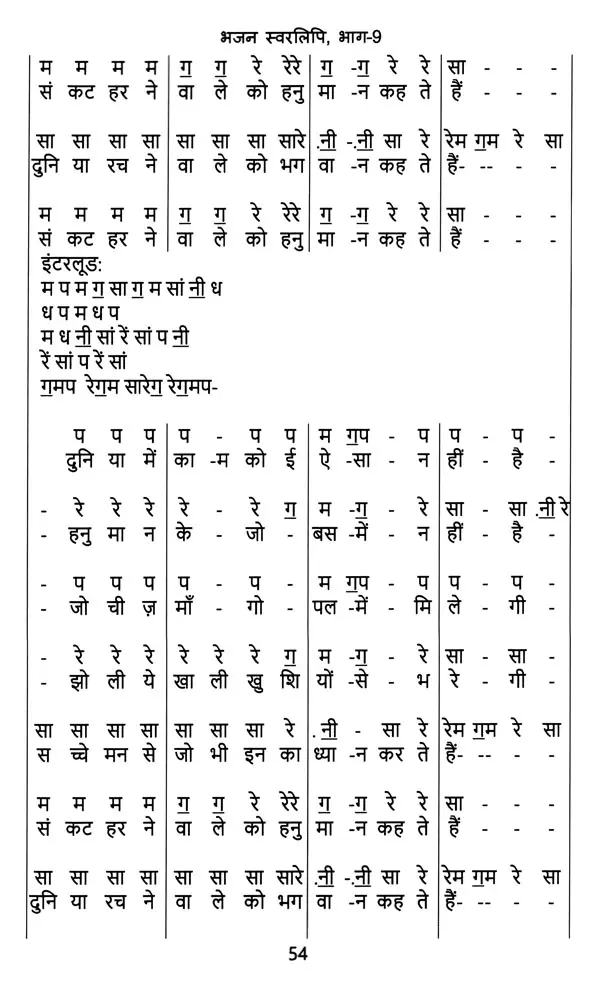 भजन स्वरलिपि, भाग-9
म म म म | ग॒ ग॒ रे रेरे | ग॒ -ग॒ रे रे | सा - - -
सं कट हर ने | वा ले को हनु | मा -न कह ते | हैं - - -
सा सा सा सा | सा सा सा सारे | .नी॒ -.नी॒ सा रे | रेम ग॒म रे सा
दुनि या रच ने | वा ले को भग | वा -न कह ते | हैं- -- - -
म म म म | ग॒ ग॒ रे रेरे | ग॒ -ग॒ रे रे | सा - - -
सं कट हर ने | वा ले को हनु | मा -न कह ते | हैं - - -
इंटरलूड:
म प म ग॒ सा ग॒ म सां नी॒ ध
ध प म ध प
म ध नी॒ सां रें सां प नी॒
रें सां प रें सां
ग॒मप रेग॒म सारेग॒ रेग॒मप-
प प प | प - प प | म ग॒प - प | प - प -
दुनि या में | का -म को ई | ऐ -सा - न | हीं - है -
- रे रे रे | रे - रे ग॒ | म -ग॒ - रे | सा - सा .नी॒रे
- हनु मा न | के - जो - | बस -में - न | हीं - है -
- प प प | प - प - | म ग॒प - प | प - प -
- जो ची ज़ | माँ - गो - | पल -में - मि | ले - गी -
- रे रे रे | रे रे रे ग॒ | म -ग॒ - रे | सा - सा -
- झो ली ये | खा ली खु शि | यों -से - भ | रे - गी -
सा सा सा सा | सा सा सा रे | .नी॒ - सा रे | रेम ग॒म रे सा
स च्चे मन से | जो भी इन का | ध्या -न कर ते | हैं- -- - -
म म म म | ग॒ ग॒ रे रेरे | ग॒ -ग॒ रे रे | सा - - -
सं कट हर ने | वा ले को हनु | मा -न कह ते | हैं - - -
सा सा सा सा | सा सा सा सारे | .नी॒ -.नी॒ सा रे | रेम ग॒म रे सा
दुनि या रच ने | वा ले को भग | वा -न कह ते | हैं- -- - -
54